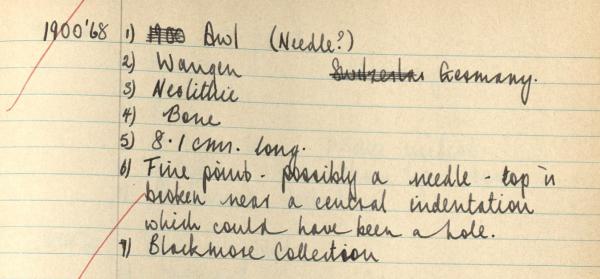 1900'68 1) Awl (Needle?)
2) Wangen Germany.
3) Neolithic
4) Bone
5) 8.1 cms. long.
6) Fine point - possibly a needle - top is
broken near a central indentation
which could have been a hole.
7) Blackmore Collection